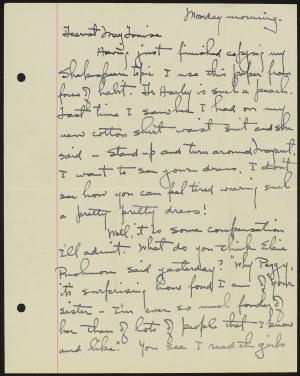 Monday morning.
Dearest May Louise
Having just finished copying my
Shakespeare topic I use this paper from
force of habit. is such a peach.
Last time I saw her I had on my
new cotton shirt waist suit and she
said – stand up and turn around Margaret,
I want to see your dress. I don't
see how you can feel tired waring such
a pretty pretty dress!
Well, it's some compensation
I'll admit. What do you think Elsie
said yesterday? "Why Peggy,
it's surprising how fond I am of your
sister – I'm ever so much fonder of
her than of lots of people that I know
and like". You see I read the girls